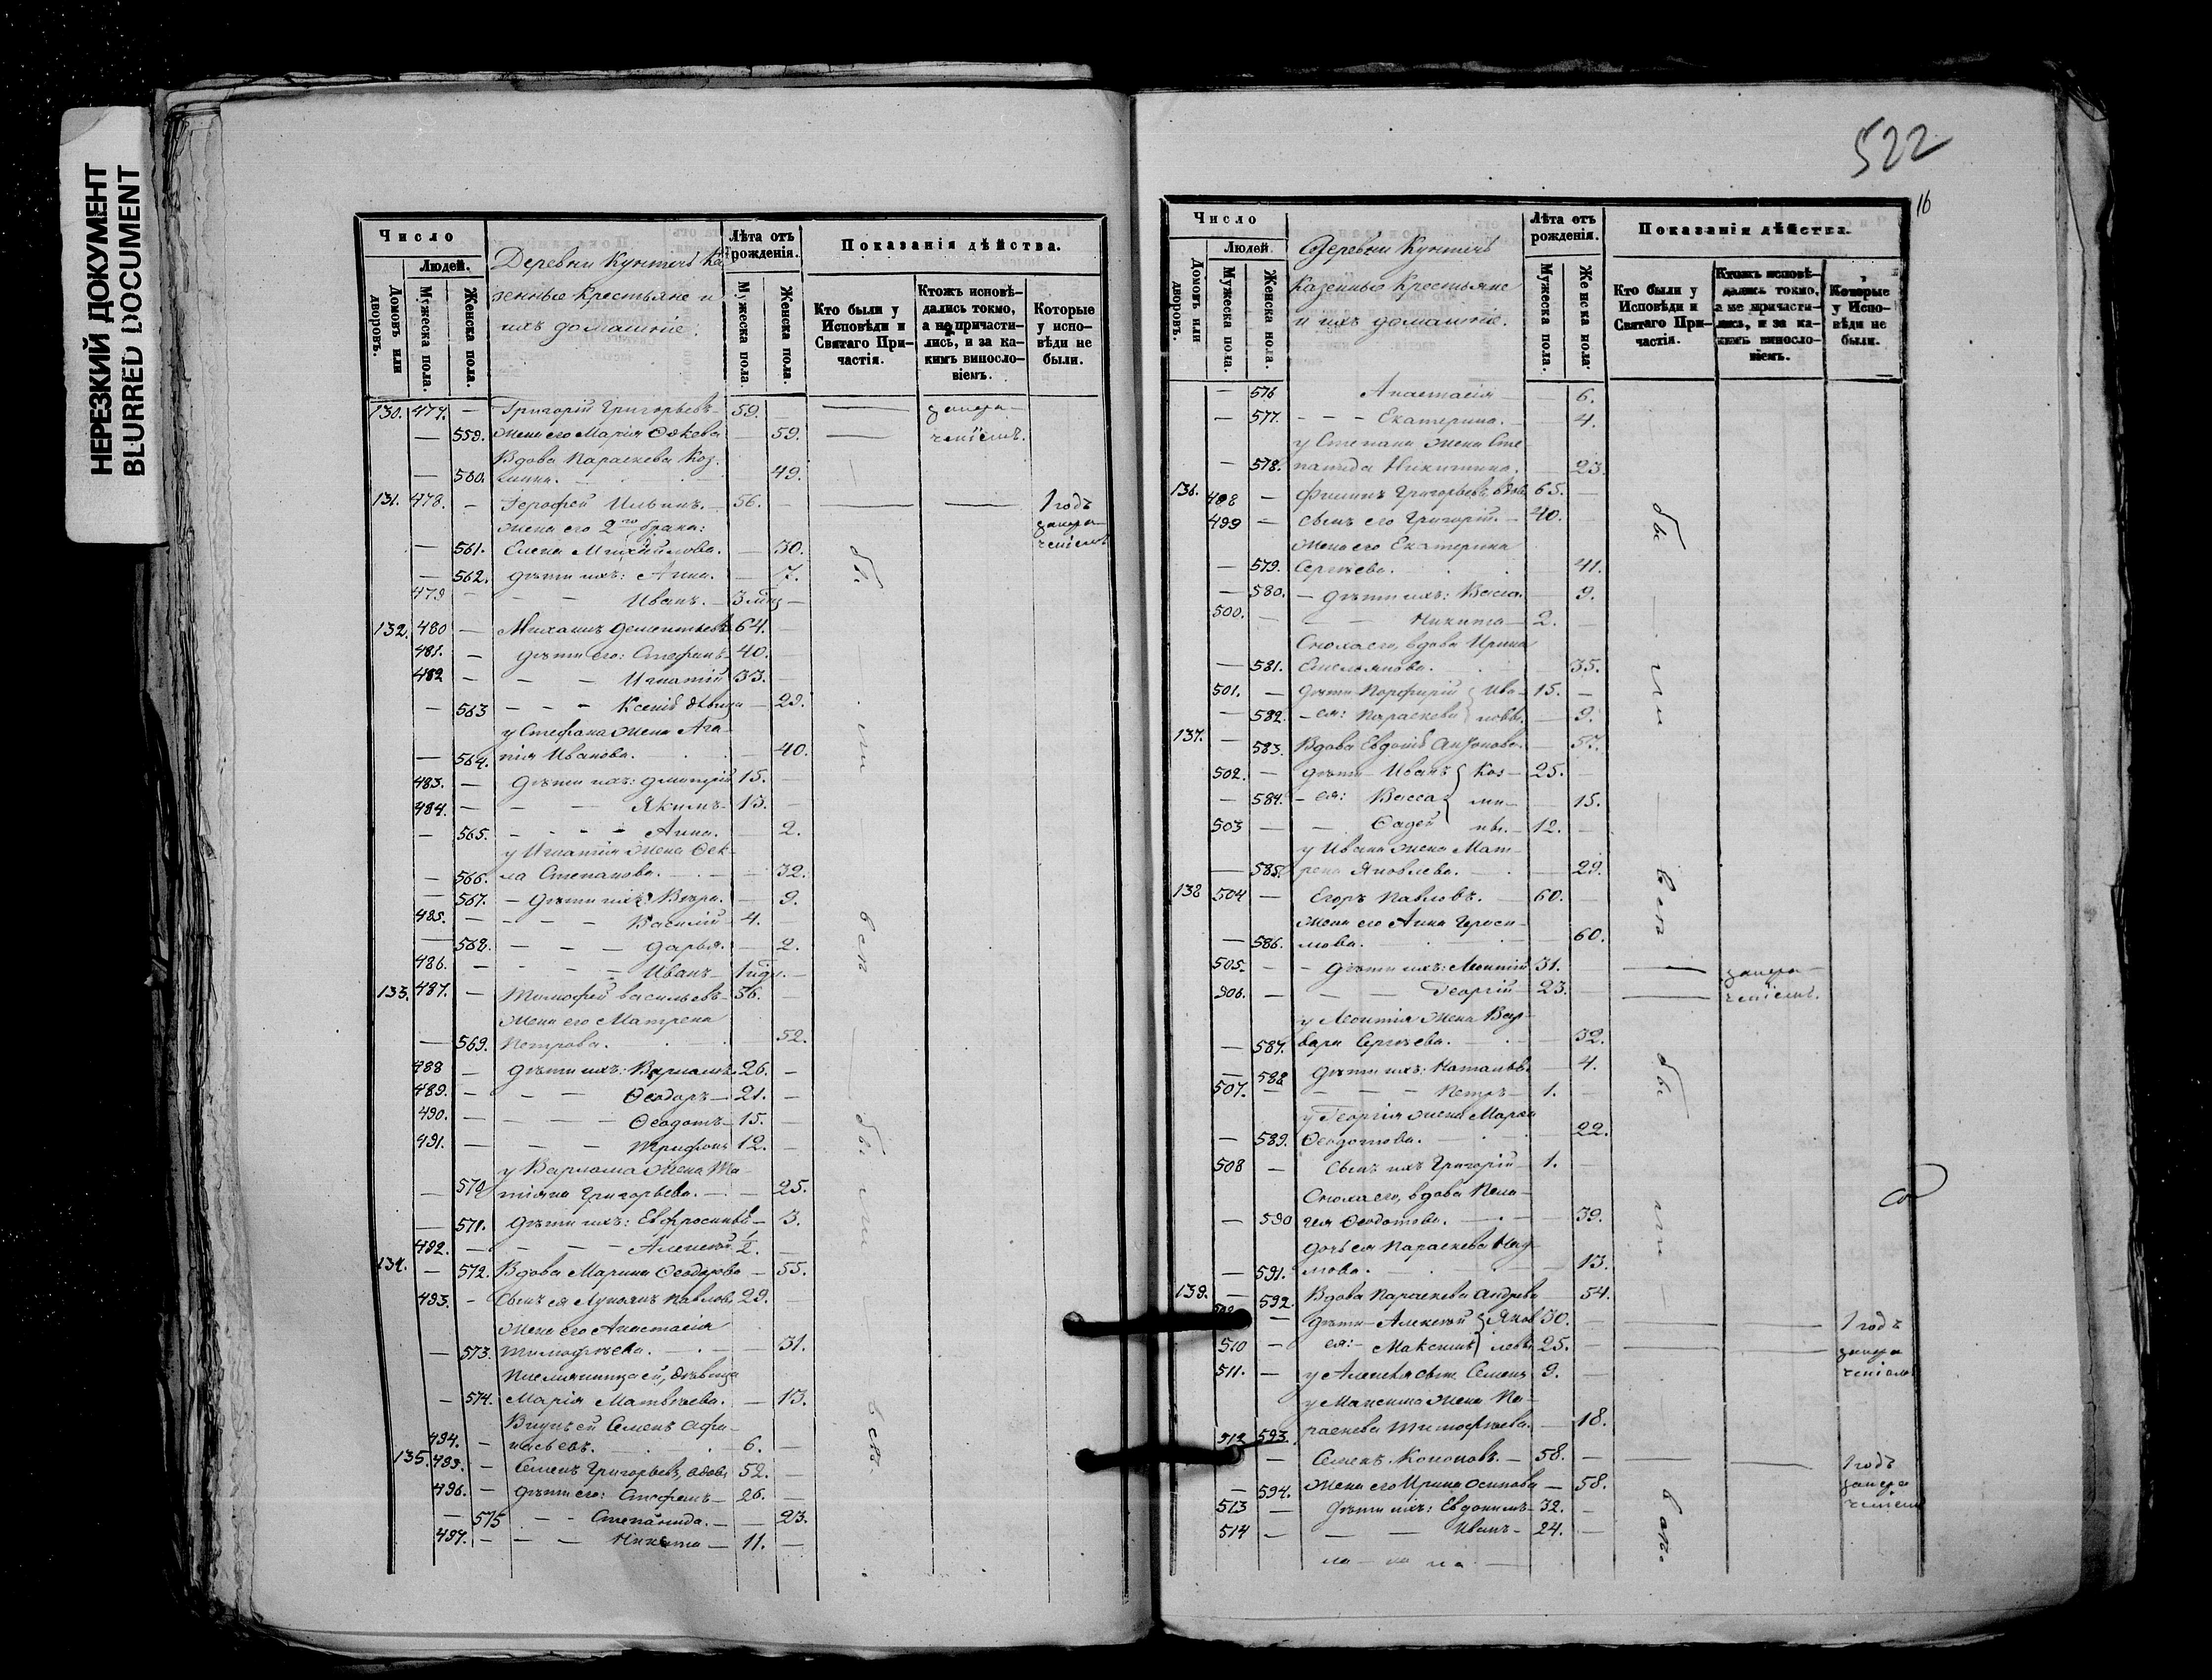 НЕРЕЗКИЙ ДОКУМЕНТ
BLURRED DOCUMENT
Число
Людей.
Домовъ или дворовъ.
Мужеска пола.
Женска пола.
Деревни Кунтичь Ка-
зенные Крестьяне и
ихъ домашніе.
Лѣта отъ рожденія.
Мужеска пола.
Женска пола.
Показанія дѣйства.
Кто были у Исповѣди и Святаго Причастія.
Ктожъ исповѣдались токмо, а не причастились, и за какимъ винословіемъ.
Которые у исповѣди не были.
130. 477. — Григорій Григорьевъ — 59. —
— 559. Жена его Марія — 59.
Вдова Параскева Коз-
— 560. — 49.
131. 478. — Іерофей Ильинъ. — 56. — 1 годъ
Жена его 2го брака:
— 561. Елена Михайлова. — 30.
— 562. дѣти ихъ: Анна. — 7.
479 — Иванъ. — 3
132. 480 — Михаилъ Дементьевъ 64. —
481. — дѣти его: Стефанъ — 40. —
482 — Игнатій 33. —
— 563 Ксенія дѣвица — 29.
у Стефана жена Ага-
— 564. пія Иванова. — 40.
483. — дѣти ихъ: Дмитрій 15. —
484. — Якимъ — 13. —
— 565. Анна. — 2.
у Игнатія жена Ѳек-
— 566. ла Степанова. — 32.
— 567. — дѣти ихъ: Вѣра. — 9.
485. — Василій — 4.
— 568. — Дарья. — 2.
486. — Иванъ — 1
133. 487. — Тимофей Васильевъ — 56. —
Жена его Матрена
— 569. Петрова. — 52.
488 — дѣти ихъ: Варлаамъ 26. —
489. — Ѳеодоръ — 21. —
490. — Ѳеодотъ — 15. —
491. — Трифонъ 12. —
у Варлама жена Та-
— 570 тіяна Григорьева. — 25.
— 571. дѣти ихъ: Евфросинія — 3.
492. — Алексѣй 1/2. —
134. — 572. Вдова Марина Ѳеодорова — 55.
493. — Сынъ ея Лукіянъ Павловъ 29. —
Жена его Анастасія
— 573. Тимофѣева. — 31.
Племянница ей, дѣвица
— 574. Марія Матвѣева. — 13.
Внукъ ей Семенъ Афа-
494. — насьевъ. 6. —
135. 495. — Семенъ Григорьевъ, вдовъ 52. —
496. — дѣти его: Стефанъ — 26. —
— 575 Степанида. — 23.
497. — Никита — 11. —
522
16
Число
Людей.
Домовъ или дворовъ.
Мужеска пола.
Женска пола.
Деревни Кунтичь
Казенные Крестьяне
и ихъ домашніе.
Лѣта отъ рожденія.
Мужеска пола.
Женска пола.
Показанія дѣйства.
Кто были у Исповѣди и Святаго Причастія.
Ктожъ исповѣдались токмо, а не причастились, и за какимъ винословіемъ.
Которые у Исповѣди не были.
— 576 Анастасія — 6.
— 577. Екатерина. — 4.
у Степана жена Сте-
— 578. панида Никитина. — 23.
136. 498 — Филипъ Григорьевъ, вдовъ 65. —
499 — сынъ его Григорій. — 40. —
жена его Екатерина
— 579. Сергѣева. — 41.
— 580. — дѣти ихъ: Васса. — 9.
500. — Никита — 2. —
Сноха его, вдова Ирина
— 581. Емельянова. — 35.
501. — дѣти Порфирій Ива- 15. —
— 582. — ея: Параскева новы. — 9.
137. — 583. Вдова Евдокія Антонова — 57.
502. — дѣти Иванъ Коз- 25. —
— 584. — ея: Васса ми- — 15.
503 — Ѳадей ны. — 12. —
у Ивана жена Мат-
— 585. рена Яковлева. — 29.
138 504 — Егоръ Павловъ. — 60. —
жена его Анна Гераси-
— 586. мова. — 60.
505. — дѣти ихъ: Леонтій 31. —
506. — Георгій — 23. —
у Леонтія жена Вар-
— 587. вара Сергѣева. — 32.
— 588 дѣти ихъ: Наталія — 4.
507. — Петръ — 1. —
у Георгія жена Марѳа
— 589. Ѳеодотова. — 22.
508 — сынъ ихъ Григорій — 1. —
Сноха его, вдова Пела-
— 590 гея Ѳеодотова. — 39.
дочь ея Параскева
— 591. — 13.
139. — 592. Вдова Параскева Андреева — 54.
509 — дѣти Алексѣй Яков 30. — 1 годъ
510 — ея: — Максимъ левы 25. —
511. — у Алексѣя сынъ Семенъ 9. —
у Максима жена Па-
593. раскева Тимофѣева. — 18.
512 — Семенъ Кононовъ. — 58. — 1 годъ
— 594. Жена его Ирина Осипова — 58.
513 — дѣти ихъ: Евдокимъ 32. —
514 — Иванъ — 24. —